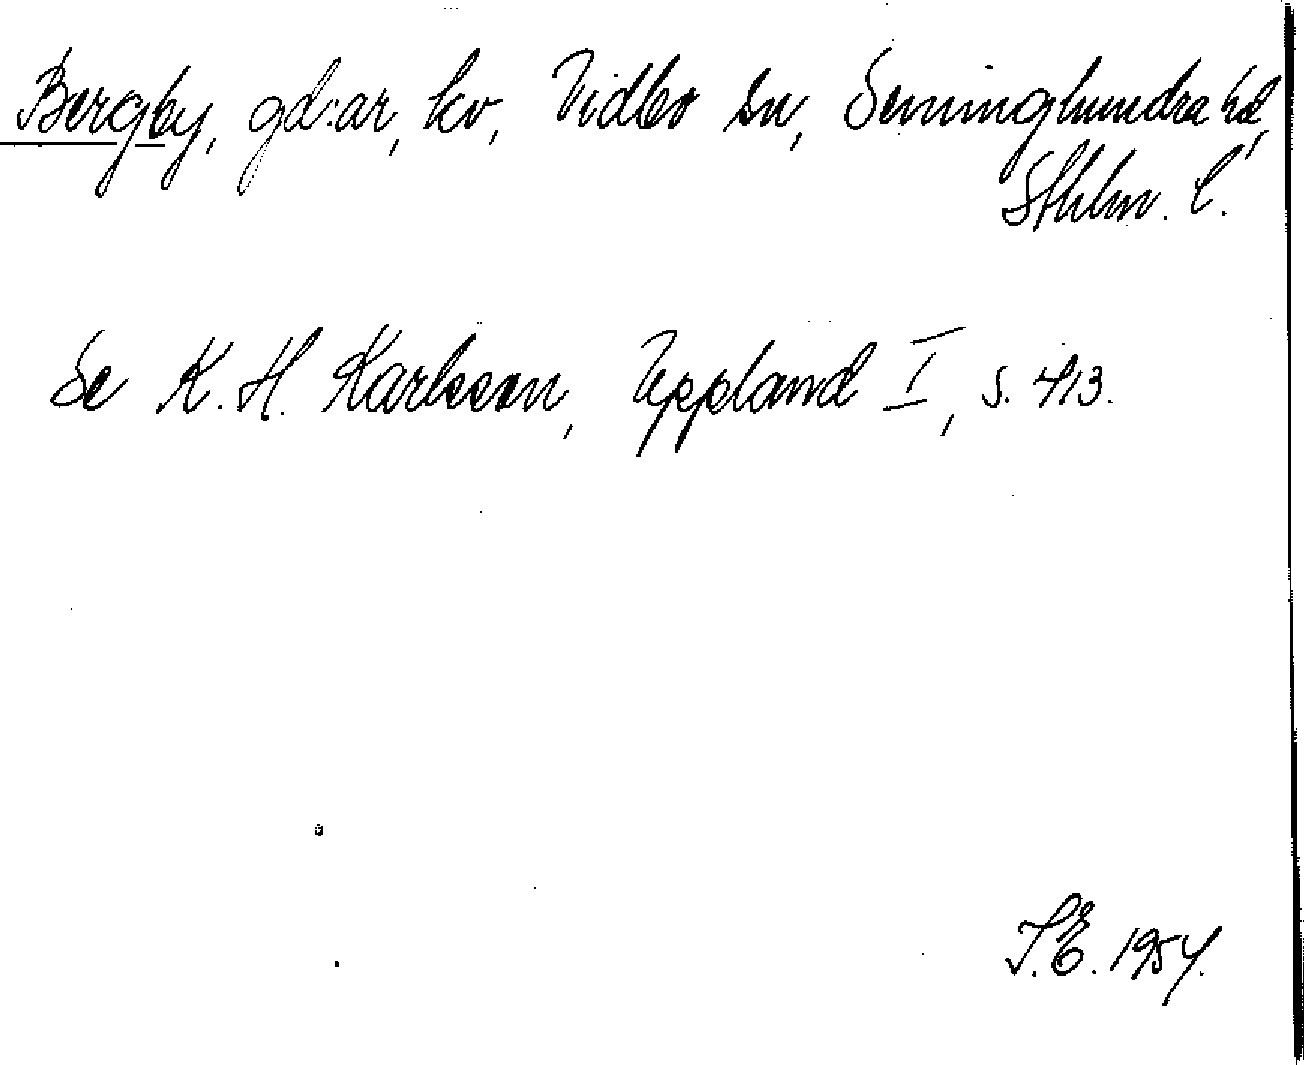 Bergby, gd:ar, kv, Vidbo sn, Seminghundra hd,
Sthlm. l.
Se K. H. Karlsson, Uppland I, s. 413.
I.E. 1954.